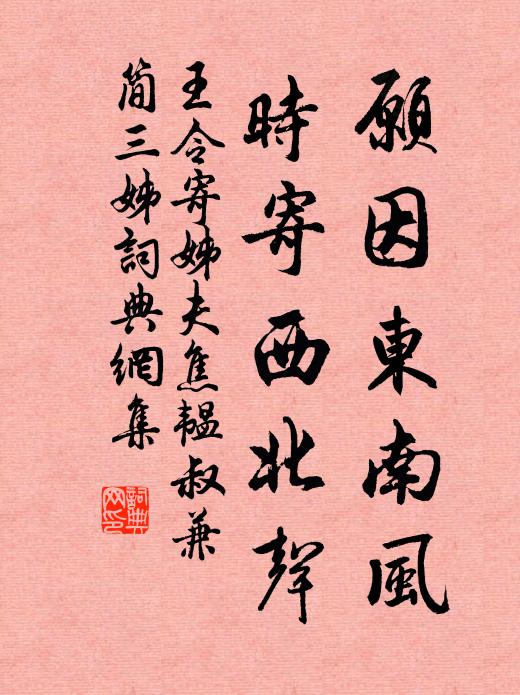 願因東南風
時寄西北聲
王令寄姊夫焦韞叔兼
简三姊詞典網集
詞典
网印